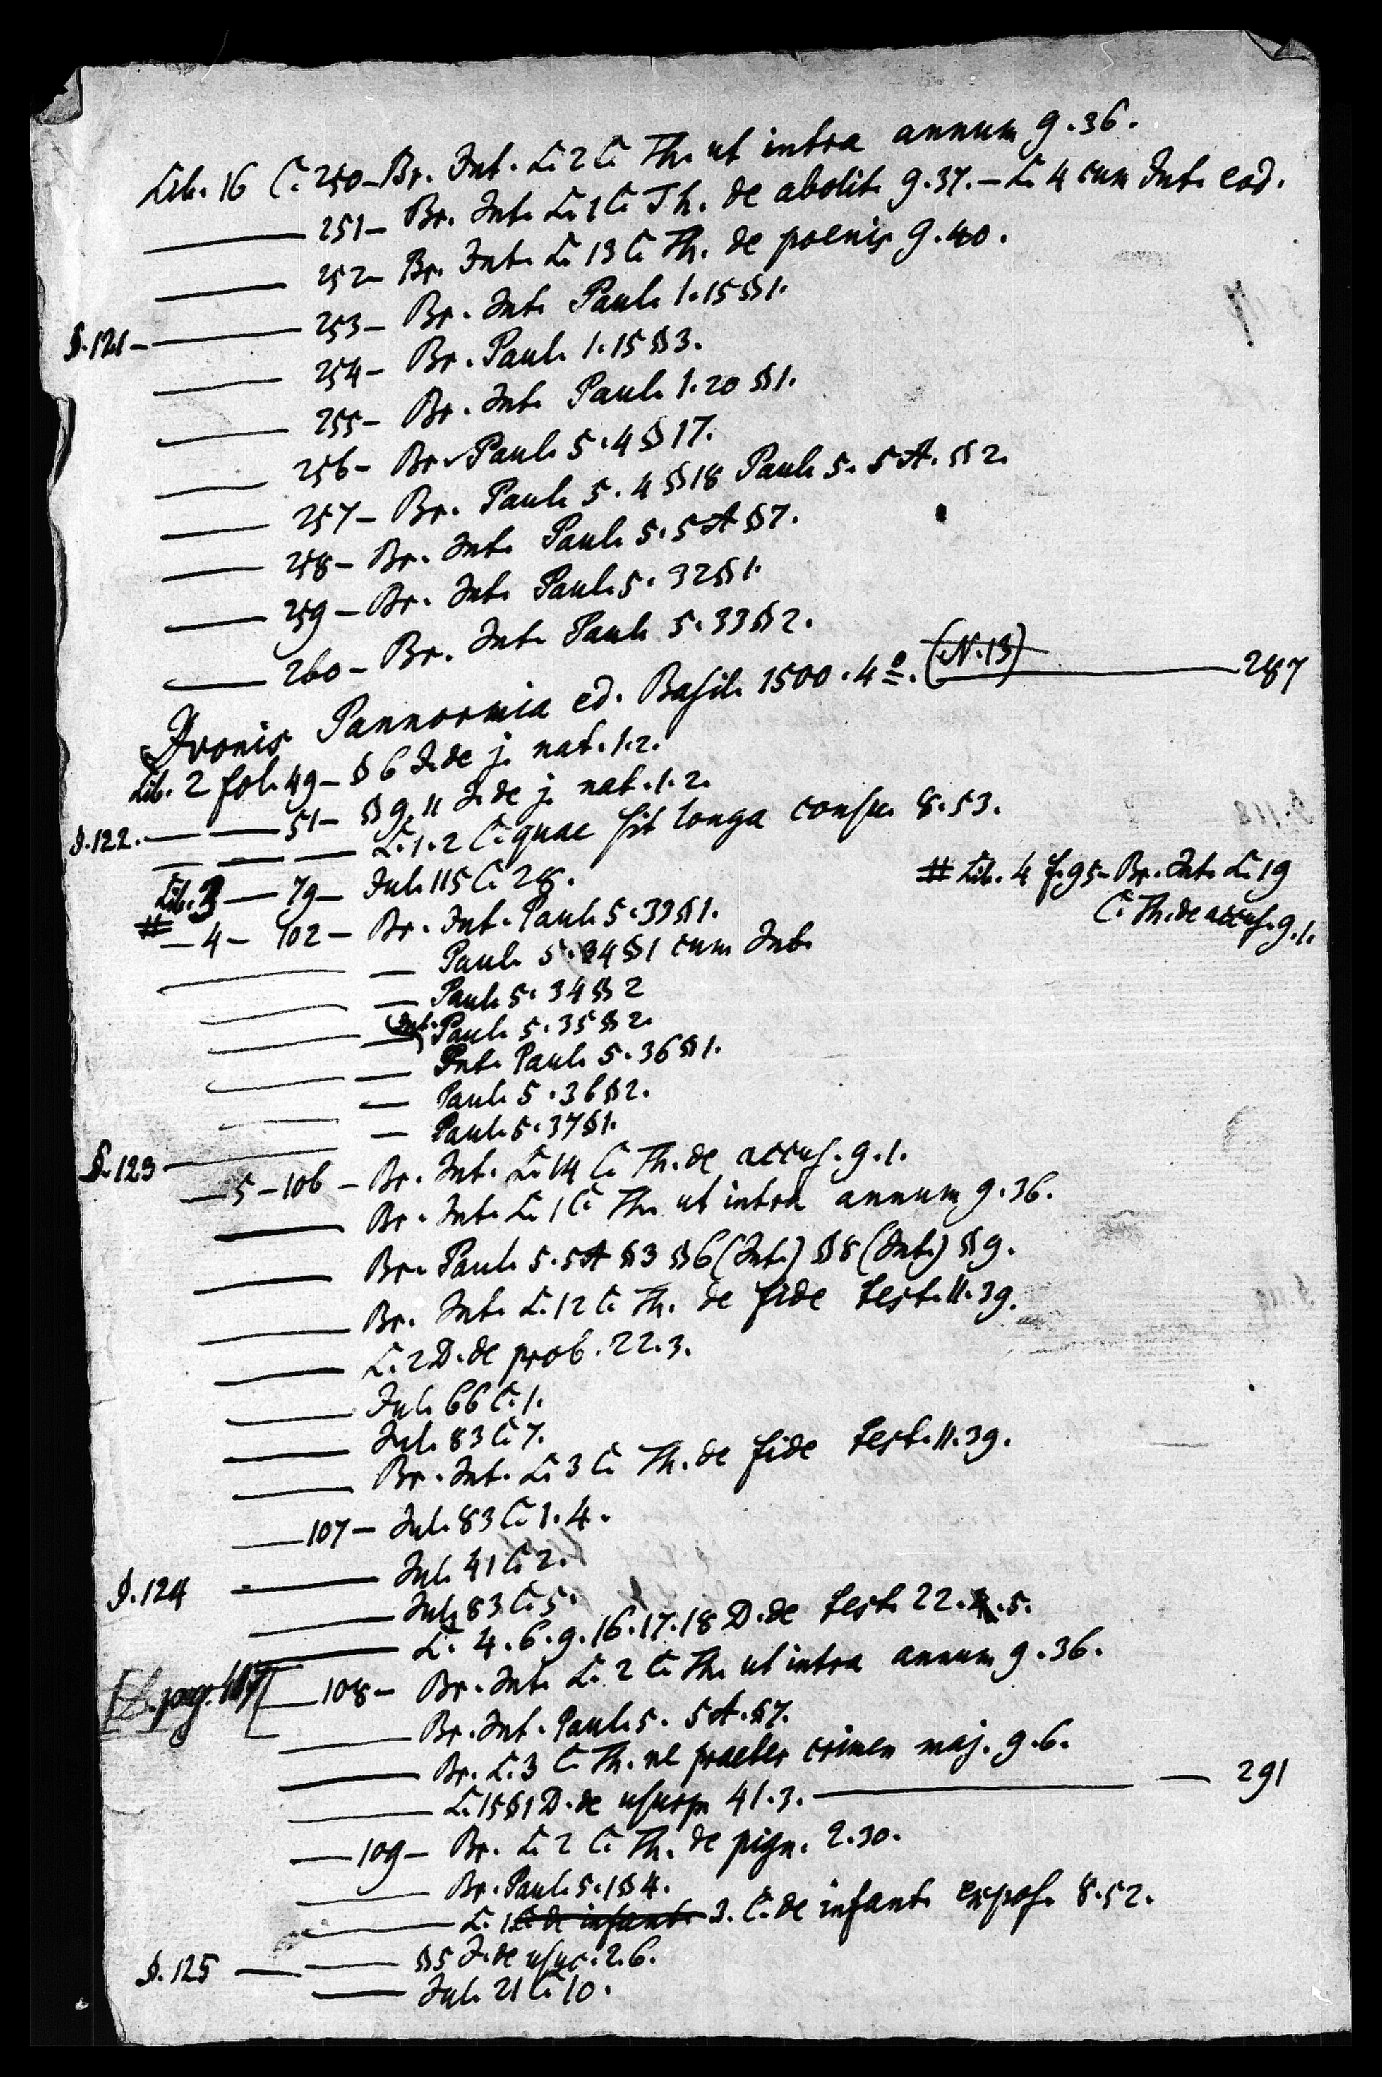 Lib. 16 C. 250 – Br. Int. L. 2 C. Th. ut intra annum 9.36.
——— 251 – Br. Int. L. 1 C. Th. de abolit. 9.37. – L. 4 cum Int. eod.
——— 252 – Br. Int. L. 13 C. Th. de poenis 9.40.
S. 121 – ——— 253 – Br. Int. Paul. 1.15 § 1.
——— 254 – Br. Paul. 1.15 § 3.
——— 255 – Br. Int. Paul. 1.20 § 1.
——— 256 – Br. Paul. 5.4 § 17.
——— 257 – Br. Paul. 5.4 § 18 Paul. 5.5A. § 2.
——— 258 – Br. Int. Paul. 5.5A § 7.
——— 259 – Br. Int. Paul. 5.32 § 1.
——— 260 – Br. Int. Paul. 5.33 § 2.
Ivonis Pannormia ed. Basil. 1500. 4º. (N. 13) ——— 287
Lib. 2 fol. 49 – § 6 I. de j. nat. 1.2.
S. 122. — — 51 – § 9, 11 I. de j. nat. 1.2.
— — — L. 1. 2 C. quae sit longa consu. 8.53.
Lib. 3 — 79 – Jul. 115 C. 28.
# Lib. 4 f. 95 – Br. Int. L. 19
C. Th. de accus. 9.1.
# — 4 – 102 – Br. Int. Paul. 5.33 § 1.
——— — Paul. 5.34 § 1 cum Int.
——— — Paul. 5.34 § 2
——— — (Int.) Paul. 5.35 § 2.
——— — Int. Paul. 5.36 § 1.
——— — Paul. 5.36 § 2.
——— — Paul. 5.37 § 1.
S. 123 ———
— 5 – 106 – Br. Int. L. 14 C. Th. de accus. 9.1.
——— Br. Int. L. 1 C. Th. ut intra annum 9.36.
——— Br. Paul. 5.5A § 3 § 6 (Int.) § 8 (Int.) § 9.
——— Br. Int. L. 12 C. Th. de fide test. 11.39.
——— L. 2 D. de prob. 22.3.
——— Jul. 66 C. 1.
——— Jul. 83 C. 7.
——— Br. Int. L. 3 C. Th. de fide test. 11.39.
— 107 – Jul. 83 C. 1. 4.
S. 124 ——— Jul. 41 C. 2.
——— Jul. 83 C. 5.
——— L. 4. 6. 9. 16. 17. 18 D. de test. 22. 5.
[S. pag. 117] [— 108 – Br. Int. L. 2 C. Th. ut intra annum 9.36.
——— Br. Int. Paul. 5. 5A. § 7.
——— Br. L. 3 C. Th. ne praeter crimen maj. 9.6.
——— L. 15 § 1 D. de usurp. 41.3. ——— — 291
— 109 – Br. L. 2 C. Th. de pign. 2.30.
——— Br. Paul. 5.1 § 4.
——— L. 1 C. de infant. 3. C. de infant. expos. 8.52.
——— § 5 I. de usuc. 2.6.
S. 125 — ——— Jul. 21 C. 10.